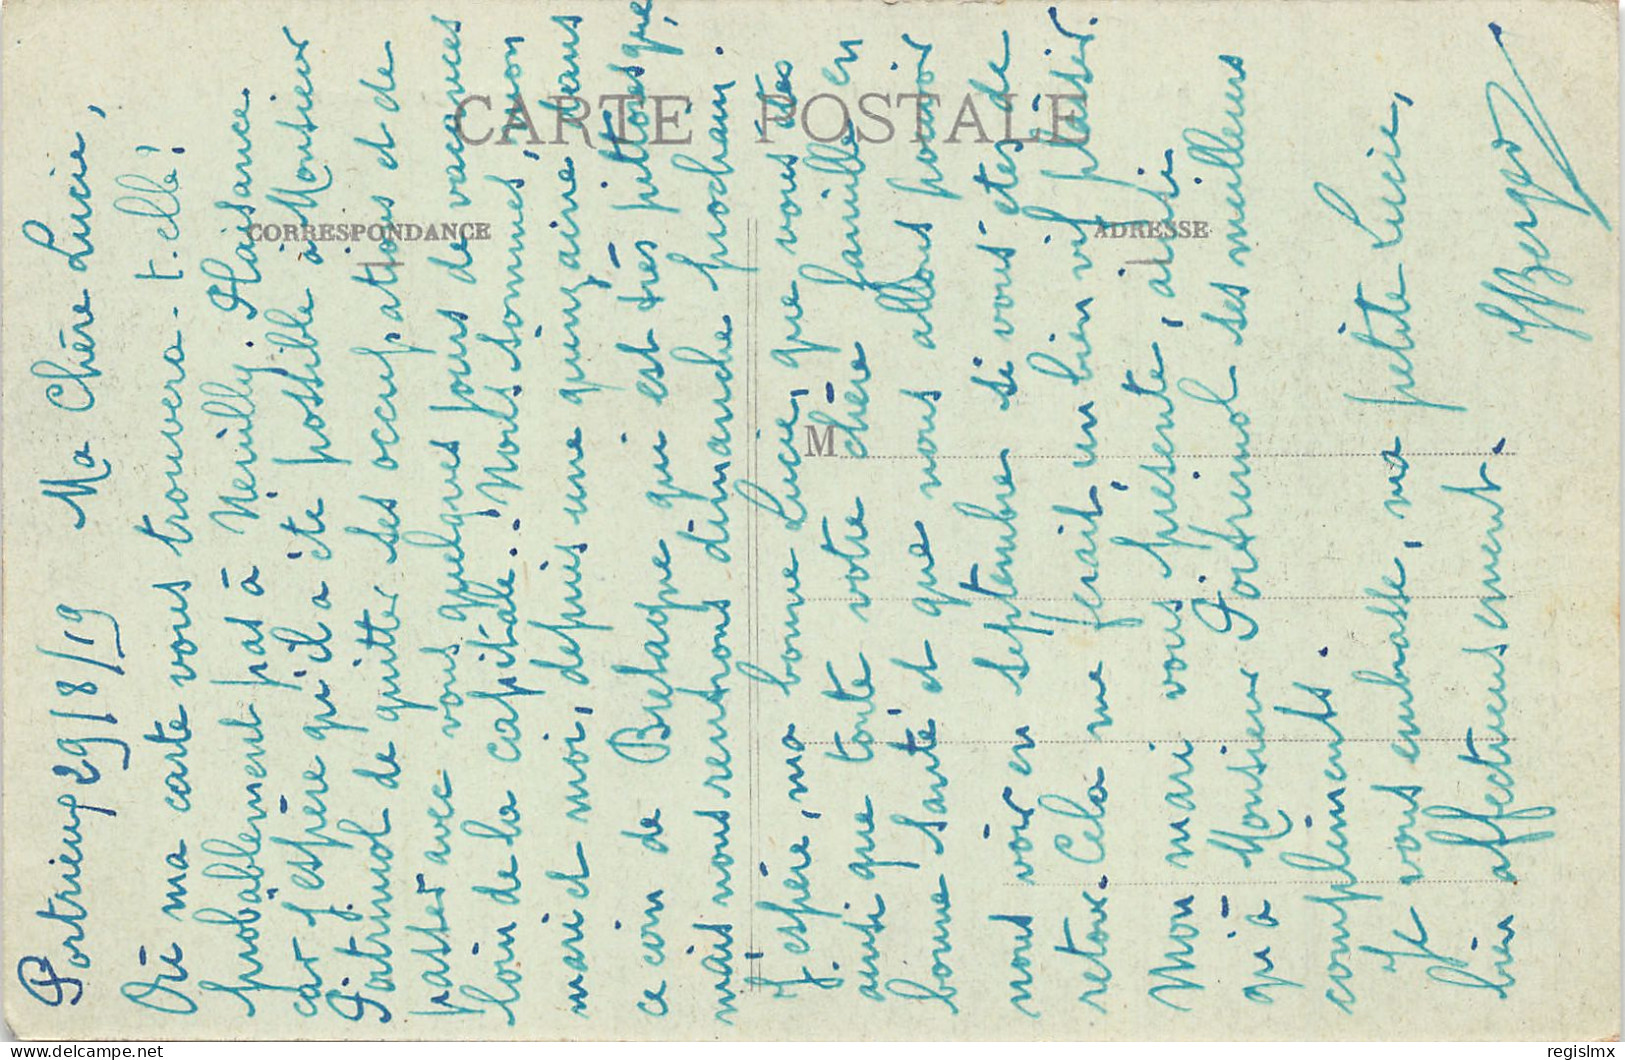 CARTE POSTALE
CORRESPONDANCE
ADRESSE
M
Portrieux 29/8/19 Ma Chère Lucie,
Où ma carte vous trouvera-t-elle?
probablement pas à Neuilly-Plaisance.
car j'espère qu'il a été possible à Monsieur
Patrimol de quitter ses occupations et de
passer avec vous quelques jours de vacances
loin de la capitale. Nous sommes, mon
mari et moi, depuis une quinzaine dans
ce coin de Bretagne qui est très pittoresque,
mais nous rentrons dimanche prochain.
J'espère, ma bonne Lucie, que vous êtes
ainsi que toute votre chère famille en
bonne santé et que nous allons pouvoir
nous voir en septembre si vous êtes de
retour. Cela me ferait un bien vif plaisir.
Mon mari vous présente, ainsi
qu'à Monsieur Patrimol ses meilleurs
compliments.
Je vous embrasse, ma petite Lucie,
bien affectueusement.
regislmx
delcampe.net